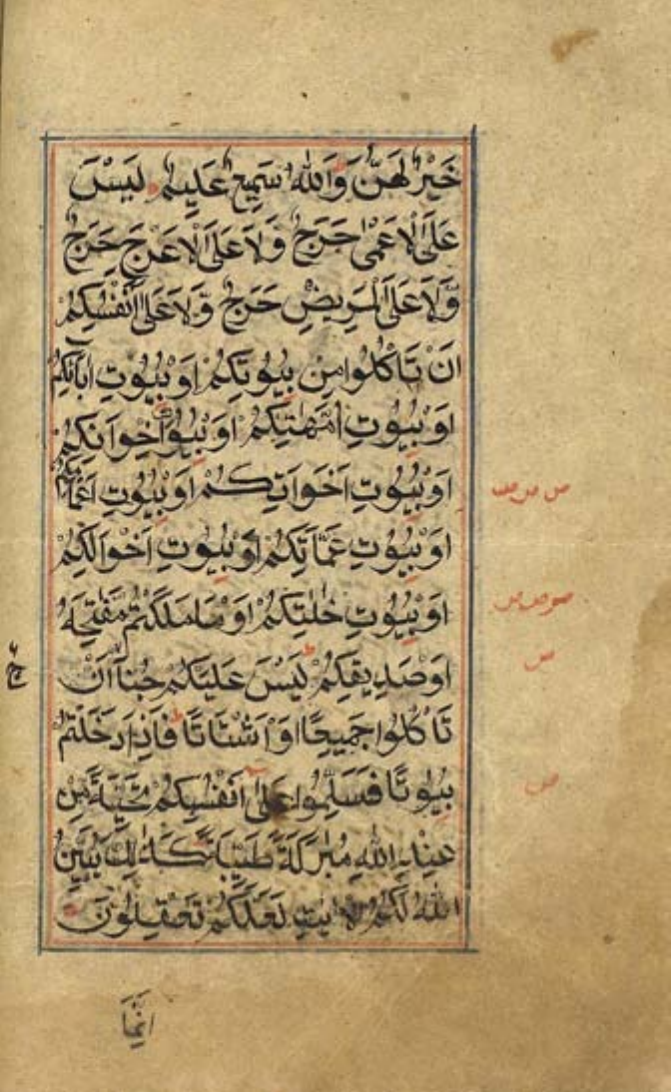 خَيْرٌ لَهُنَّ وَاللّٰهُ سَمِيعٌ عَلِيمٌ لَيْسَ
عَلَى الْاَعْمٰى حَرَجٌ وَلَا عَلَى الْاَعْرَجِ حَرَجٌ
وَّلَا عَلَى الْمَرِيضِ حَرَجٌ وَّلَا عَلٰى اَنْفُسِكُمْ
اَنْ تَاْكُلُوا مِنْ بُيُوتِكُمْ اَوْ بُيُوتِ اٰبَآئِكُمْ
اَوْ بُيُوتِ اُمَّهٰتِكُمْ اَوْ بُيُوتِ اِخْوَانِكُمْ
اَوْ بُيُوتِ اَخَوَاتِكُمْ اَوْ بُيُوتِ اَعْمَامِكُمْ
اَوْ بُيُوتِ عَمَّاتِكُمْ اَوْ بُيُوتِ اَخْوَالِكُمْ
اَوْ بُيُوتِ خٰلٰتِكُمْ اَوْ مَا مَلَكْتُمْ مَفَاتِحَهٗ
اَوْ صَدِيقِكُمْ لَيْسَ عَلَيْكُمْ جُنَاحٌ اَنْ
تَاْكُلُوا جَمِيعًا اَوْ اَشْتَاتًا فَاِذَا دَخَلْتُمْ
بُيُوتًا فَسَلِّمُوا عَلٰى اَنْفُسِكُمْ تَحِيَّةً مِّنْ
عِنْدِ اللّٰهِ مُبٰرَكَةً طَيِّبَةً كَذٰلِكَ يُبَيِّنُ
اللّٰهُ لَكُمُ الْاٰيٰتِ لَعَلَّكُمْ تَعْقِلُونَ
اِنَّمَا